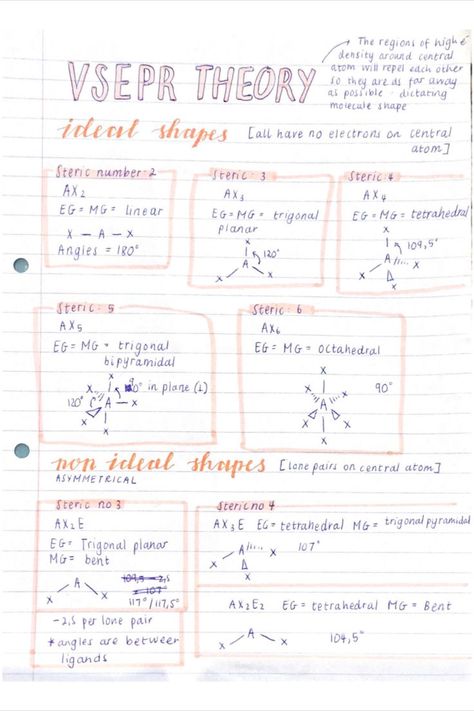 The regions of high e⁻
density around central
atom will repel each other
so they are as far away
as possible - dictating
molecule shape
VSEPR THEORY
ideal shapes [all have no electrons on central
atom]
Steric number: 2
AX₂
EG = MG = linear
X — A — X
Angles = 180°
Steric : 3
AX₃
EG = MG = trigonal
planar
X
120°
A
X X
Steric : 4
AX₄
EG = MG = tetrahedral
X
109,5°
A X
X X
Steric : 5
AX₅
EG = MG = trigonal
bipyramidal
X
X 90° in plane (⊥)
120° A — X
X
X
Steric : 6
AX₆
EG = MG = octahedral
X
X X 90°
A
X X
X
non ideal shapes [lone pairs on central atom]
ASYMMETRICAL
Steric no 3
AX₂E
EG = Trigonal planar
MG = bent
A
X X
109,5 - 2,5
= 107°
117°/117,5°
-2,5 per lone pair
* angles are between
ligands
Steric no 4
AX₃E EG = tetrahedral MG = trigonal pyramidal
A X 107°
X X
AX₂E₂ EG = tetrahedral MG = Bent
A
X X 104,5°